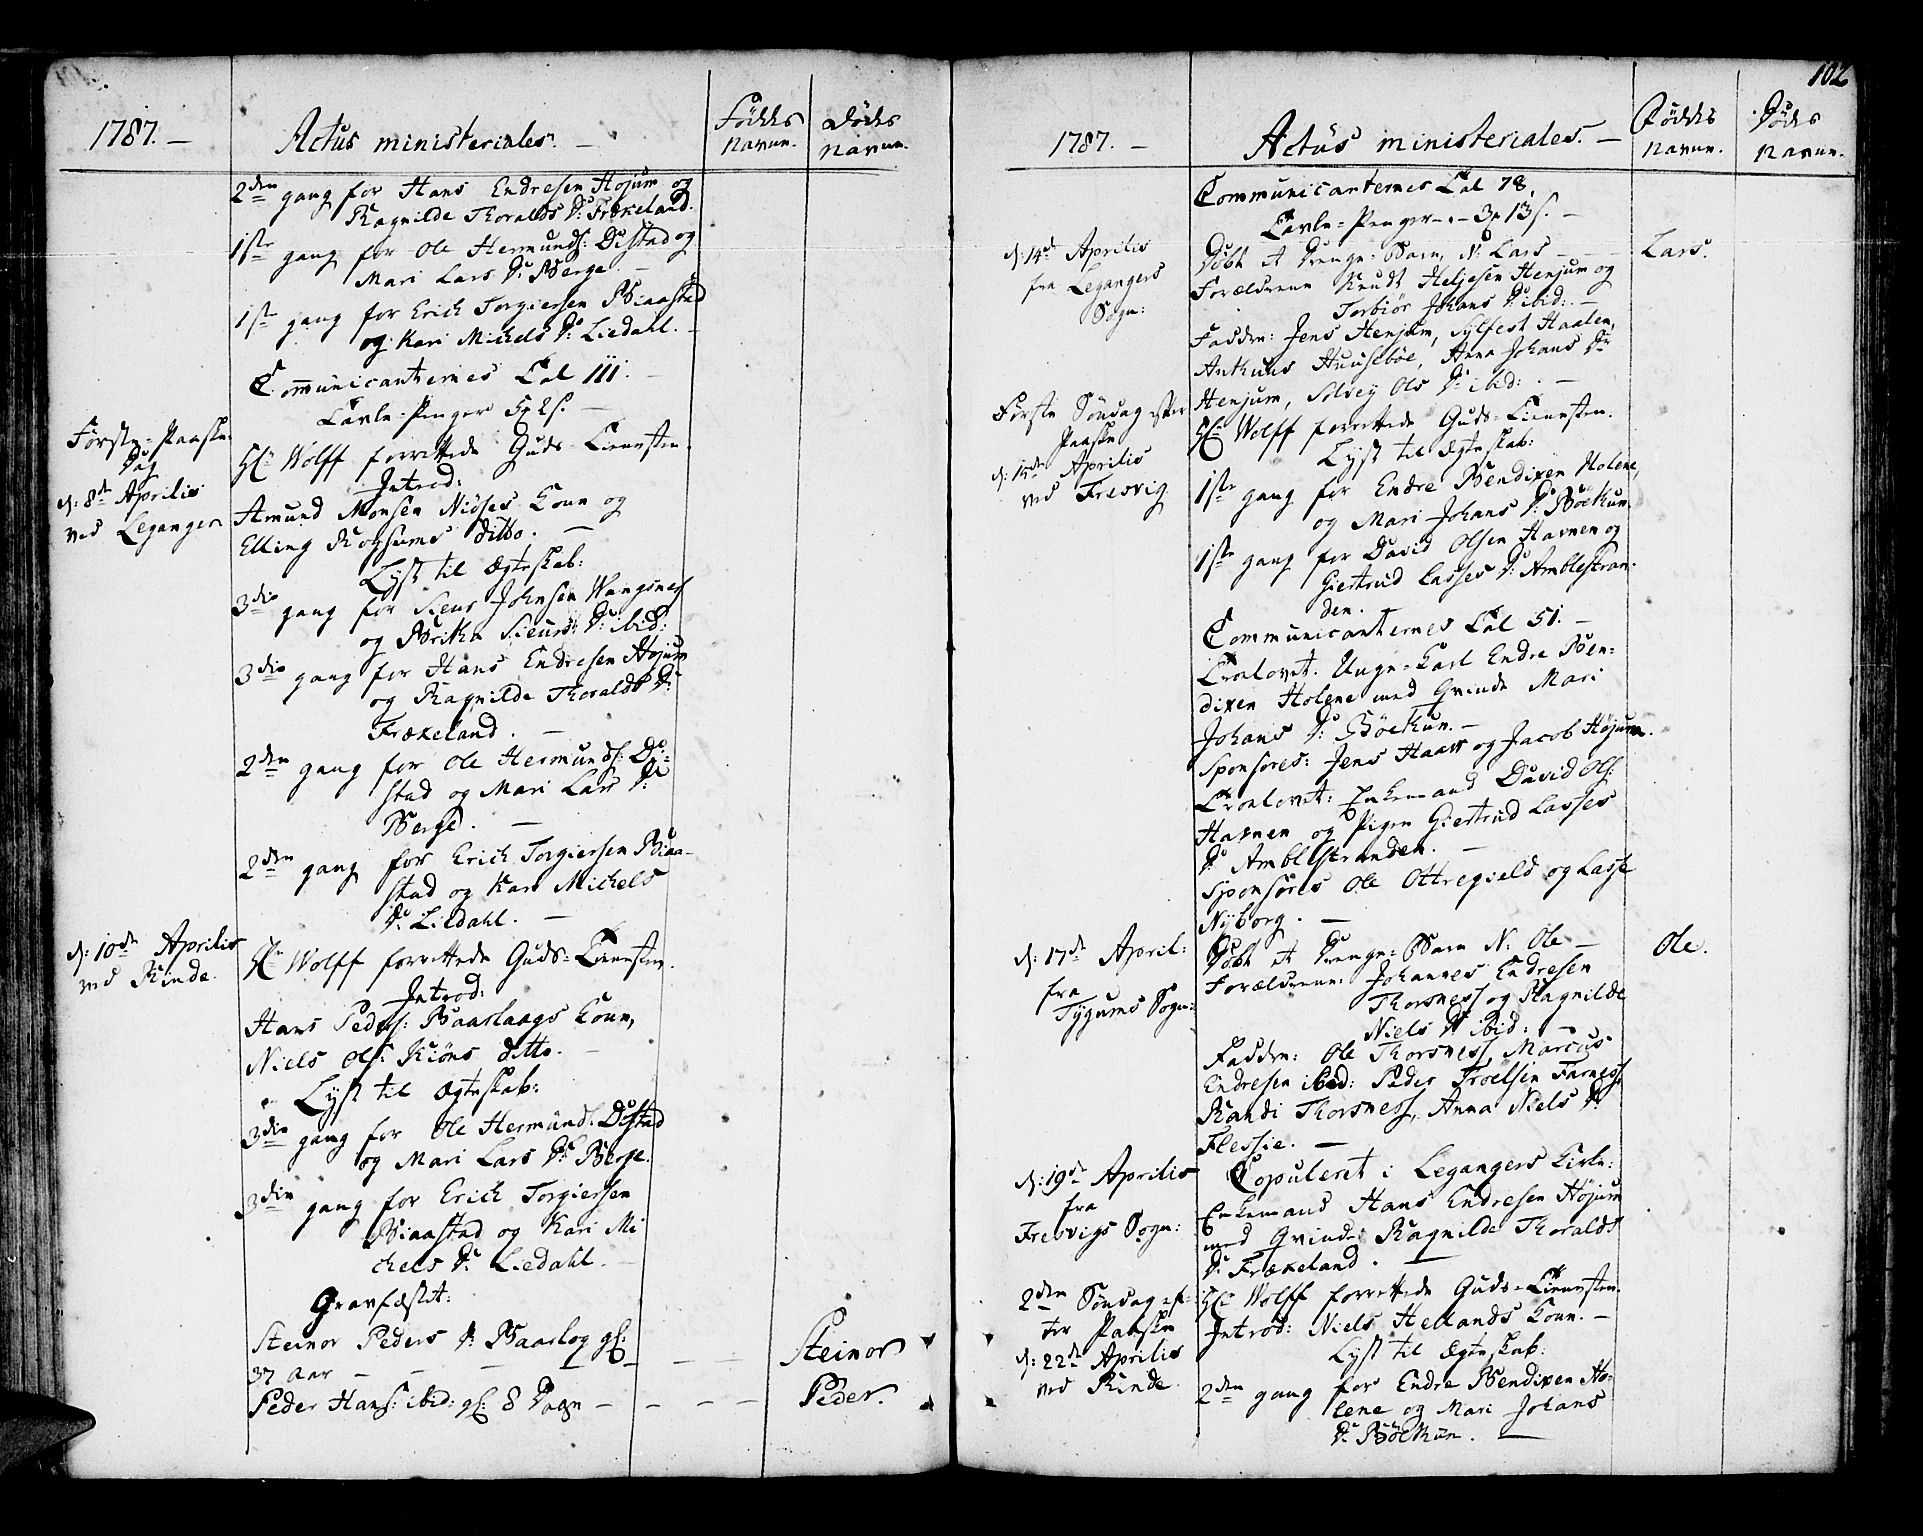 1787. —
Actus ministeriales. —
Föddes Navne.
Dödes Navne.
2den gang for Hans Endresen Höjum og
Ragnilde Thoralds D: Frækeland.
1ste gang for Ole Hermunds: Distad og
Mari Lars D: Berge. —
1ste gang for Erich Torgiersen Biaastad
og Kari Michels D: Liedahl. —
Communicanternes Tal 111. —
Tavle-Penger 5 2 s. —
Förste Paaske
Dag
d: 8de Aprilis
ved Leganger
Hr Wolff forrettede Guds-Tienesten.
Introd:
Amund Monsen Niöses Kone og
Elling Rogsums ditto. —
Lyst til Ægteskab:
3die gang for Siens Johnsen Wangsnes
og Britha Sieurs D: ibid:
3die gang for Hans Endresen Höjum
og Ragnilde Thoralds D:
Frækeland. —
2den gang for Ole Hermunds: Di-
stad og Mari Lars D:
Berge. —
2den gang for Erich Torgiersen Biaa-
stad og Kari Michels
D: Liedahl. —
d: 10de Aprilis
ved Rinde.
Hr Wolff forrettede Guds-Tienesten.
Introd:
Hans Peders: Baarlaags Kone,
Niels Ols: Kiöns ditto. —
Lyst til Ægteskab:
3die gang for Ole Hermunds: Distad
og Mari Lars D: Berge.
3die gang for Erich Torgiersen
Biaastad og Kari Mi
chels D: Liedahl. —
Gravfæstet:
Steinor Peders D: Baarlog gl:
37 Aar — — — — — —
Steinor
Peder Hans: ibid: gl: 8 Dage — — — —
Peder.
102
1787. —
Actus ministeriales. —
Föddes Navne.
Dödes Navne.
Communicanternes Tal 78.
Tavle-Penger — 3 13 s. —
d: 14de Aprilis
fra Legangers
Sogn:
Döbt et Drenge-Barn, N: Lars — — —
Lars.
Forældrene Knudt Heljesen Henjum og
Torbiör Johans D: ibid: —
Faddere: Jens Henjum, Sylfest Haalen,
Anthuns Huuseböe, Anna Johans Dr
Henjum, Solvey Ols D: ibid: —
Förste Söndag efter
Paaske
d: 15de Aprilis
ved Fresvig
Hr Wolff forrettede Guds-Tienesten.
Lyst til Ægteskab:
1ste gang for Endre Bendixen Holene,
og Mari Johans D: Böethun.
1ste gang for David Olsen Havnen og
Giertrud Lasses D: Amblestran-
den.
Communicanternes Tal 51. —
Trolovet: Unge-Karl Endre Ben-
dixen Holene med Qvinde Mari
Johans D: Böethun. —
Sponsores: Jens Haare og Jacob Höjum.
Trolovet: Enkemand David Ols:
Havnen og Pigen Giertrud Lasses
D: Amblestranden. —
Sponsores Ole Ottregield og Lasse
Nyborg. —
d: 17de April:
fra
Tygums Sogn:
Döbt et Drenge-Barn N: Ole —
Ole.
Forældrene: Johannes Endresen
Thorsness og Ragnilde
Niels D: ibid: —
Faddere: Ole Thorsness, Marcus
Endresen ibid: Peder Troelsen Farness,
Randi Thorsness, Anna Niels D:
Flessie. —
d: 19de Aprilis
fra
Fresvigs Sogn:
Copuleret i Legangers Kirke:
Enkemand Hans Endresen Höjum
med Qvinde Ragnilde Thoralds
D: Frækeland. —
2den Söndag ef-
ter Paaske
d: 22de Aprilis
ved Rinde.
Hr Wolff forrettede Guds-Tienesten.
Introd: Niels Hellands Kone. —
Lyst til Ægteskab:
2den gang for Endre Bendixen Ho-
lene og Mari Johans
D: Böethun. —